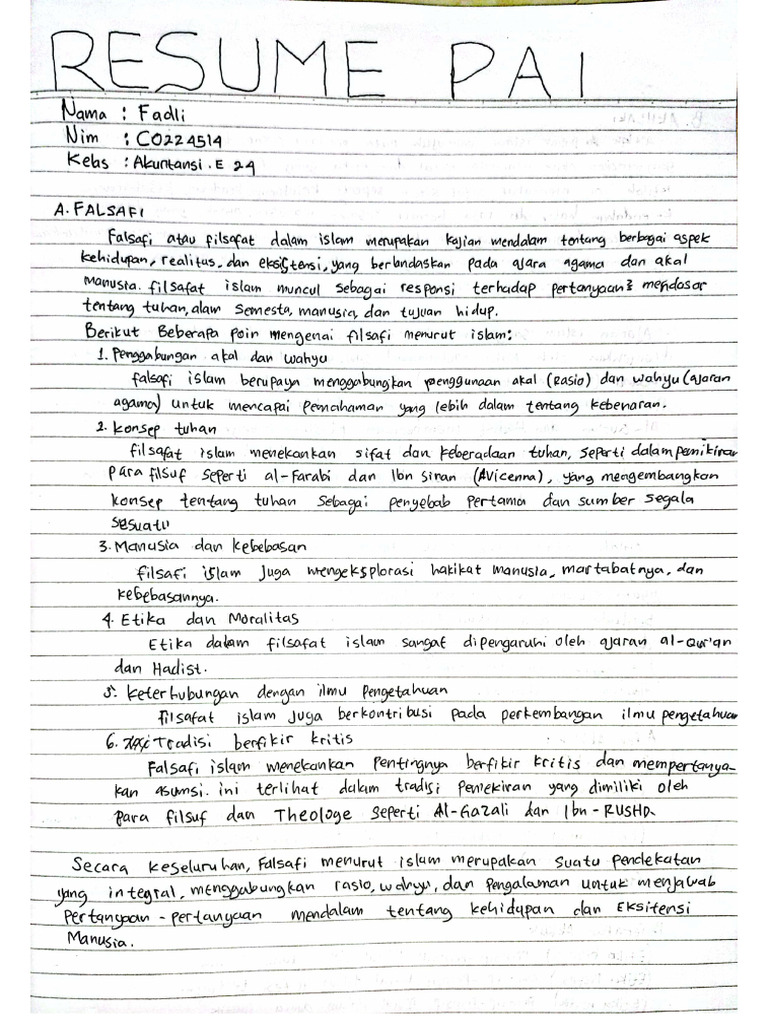 RESUME PAI
Nama : Fadli
Nim : C0224514
Kelas : Akuntansi . E 24
A. FALSAFI
Falsafi atau filsafat dalam islam merupakan kajian mendalam tentang berbagai aspek
kehidupan, realitas, dan eksistensi, yang berlandaskan pada ajara agama dan akal
manusia. filsafat islam muncul sebagai responsi terhadap pertanyaan² mendasar
tentang tuhan, alam semesta, manusia, dan tujuan hidup.
Berikut Beberapa poin mengenai filsafi menurut islam:
1. Penggabungan akal dan wahyu
falsafi islam berupaya menggabungkan penggunaan akal (rasio) dan wahyu (ajaran
agama) untuk mencapai pemahaman yang lebih dalam tentang kebenaran.
2. Konsep tuhan
filsafat islam menekankan sifat dan keberadaan tuhan, seperti dalam pemikiran
para filsuf seperti al-Farabi dan Ibn Siran (Avicenna), yang mengembangkan
konsep tentang tuhan sebagai penyebab pertama dan sumber segala
sesuatu
3. Manusia dan kebebasan
filsafi islam juga mengeksplorasi hakikat manusia, martabatnya, dan
kebebasannya.
4. Etika dan Moralitas
Etika dalam filsafat islam sangat dipengaruhi oleh ajaran al-Qur'an
dan Hadist.
5. Keterhubungan dengan ilmu pengetahuan
filsafat islam juga berkontribusi pada perkembangan ilmu pengetahuan
6. Tradisi berfikir kritis
Falsafi islam menekankan pentingnya berfikir kritis dan mempertanya-
kan asumsi. ini terlihat dalam tradisi pemekiran yang dimiliki oleh
para filsuf dan Theologe seperti Al-Gazali dan Ibn-RUSHD.
Secara keseluruhan, Falsafi menurut islam merupakan suatu pendekatan
yang integral, menggabungkan rasio, wahyu, dan pengalaman untuk menjawab
pertanyaan-pertanyaan mendalam tentang kehidupan dan Eksitensi
Manusia.